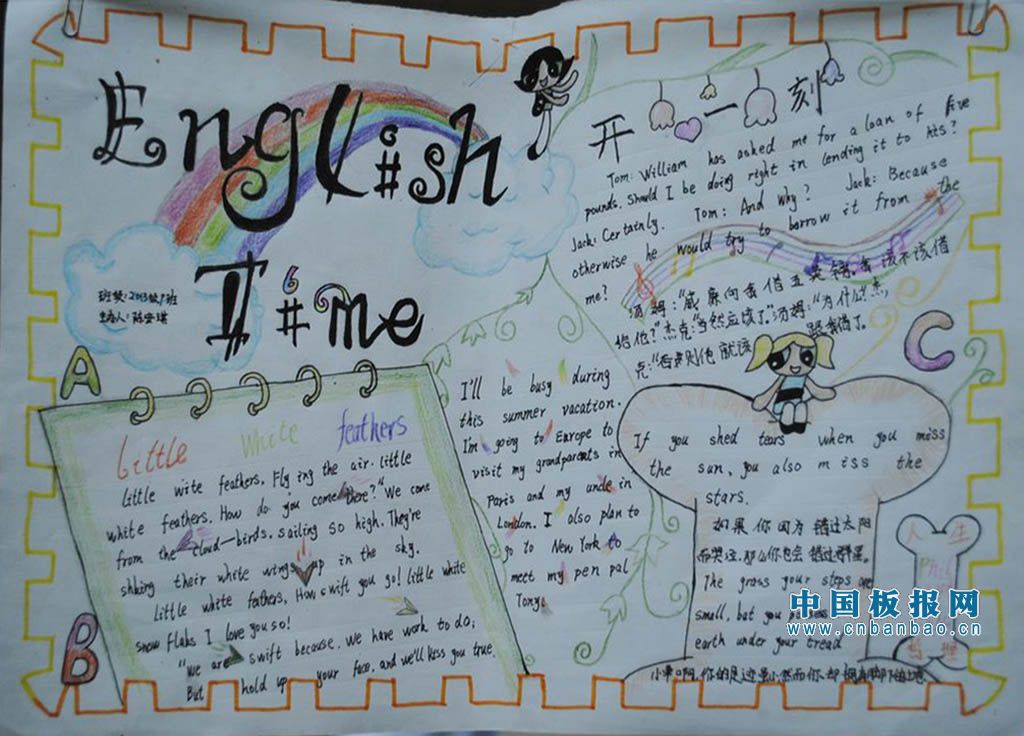 English
Time
班级:2013级1班
主办人:
开心一刻
Tom: William has asked me for a loan of five
pounds. Should I be doing right in lending it to his?
Jack: Certainly. Tom: And Why? Jack: Because
otherwise he would try to borrow it from the
me?
汤姆:"威廉向我借五英镑,我该不该借
给他?"杰克:"当然应该了。"汤姆:"为什么?"杰
克:"否则他就该跟我借了。
A
Little White feathers
Little wite feathers. Flying the air. little
white feathers. How do you come there?" We come
from the cloud—birds. sailing so high. They're
shking their white wings up in the sky.
Little white fathers, How swift you go! little white
snow flaks I love you so!
"we are swift because. we have work to do;
But hold up your face, and we'll kiss you true.
B
I'll be busy during
this summer vacation.
I'm going to Europe to
visit my grandparents in
Paris and my uncle in
London. I also plan to
go to New York to
meet my pen pal
Tony.
C
If you shed tears when you miss
the sun, you also miss the
stars.
如果你因为错过太阳
而哭泣.那么你也会错过群星。
The grass your steps are
small, but you possess
earth under your tread
小草啊,你的足迹虽小,然而你却拥有脚下的土地
人生
Phil
哲理
中国板报网
www.cnbanbao.cn